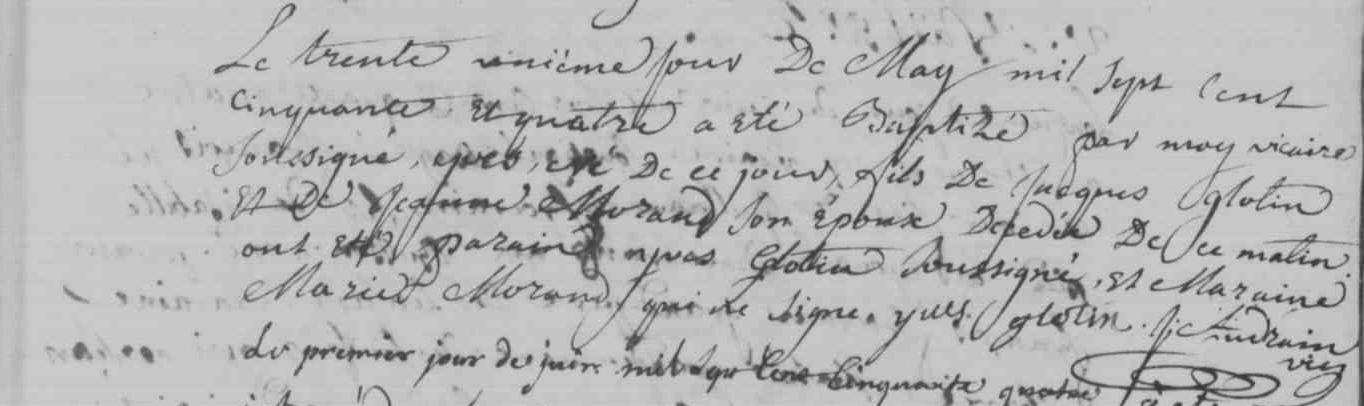 Le trente uniéme jour De May mil Sept Cent
Cinquante Et quatre a eté Baptizé par moy vicaire
soussigné, yves, né De ce jour, fils De Jacques glotin
Et De Jeanne Morand Son Epouse Decedée De ce matin
ont Eté parain yves Glotin Soussigné, et Maraine
Marie Morand qui ne signe. yves glotin.
vic
Le premier jour de juin mil Sept Cent Cinquante quatre